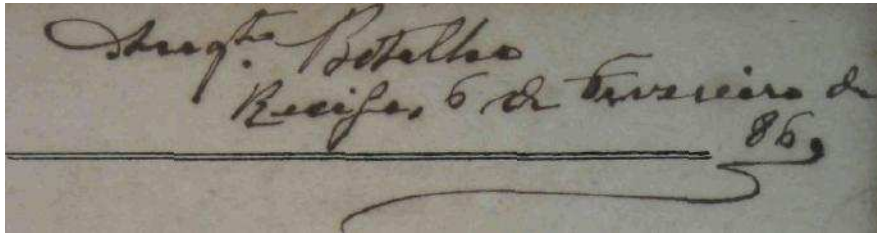 Augto. Botelho
Recife, 6 de Fevereiro de
86,